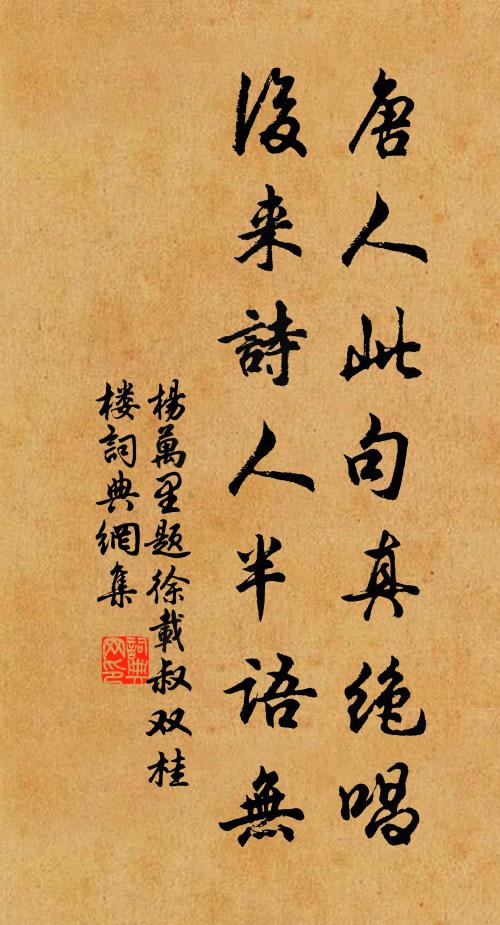 唐人此句真絶唱
後来詩人半語無
楊萬里題徐載叔双桂
楼詞典網集
詞典
网印